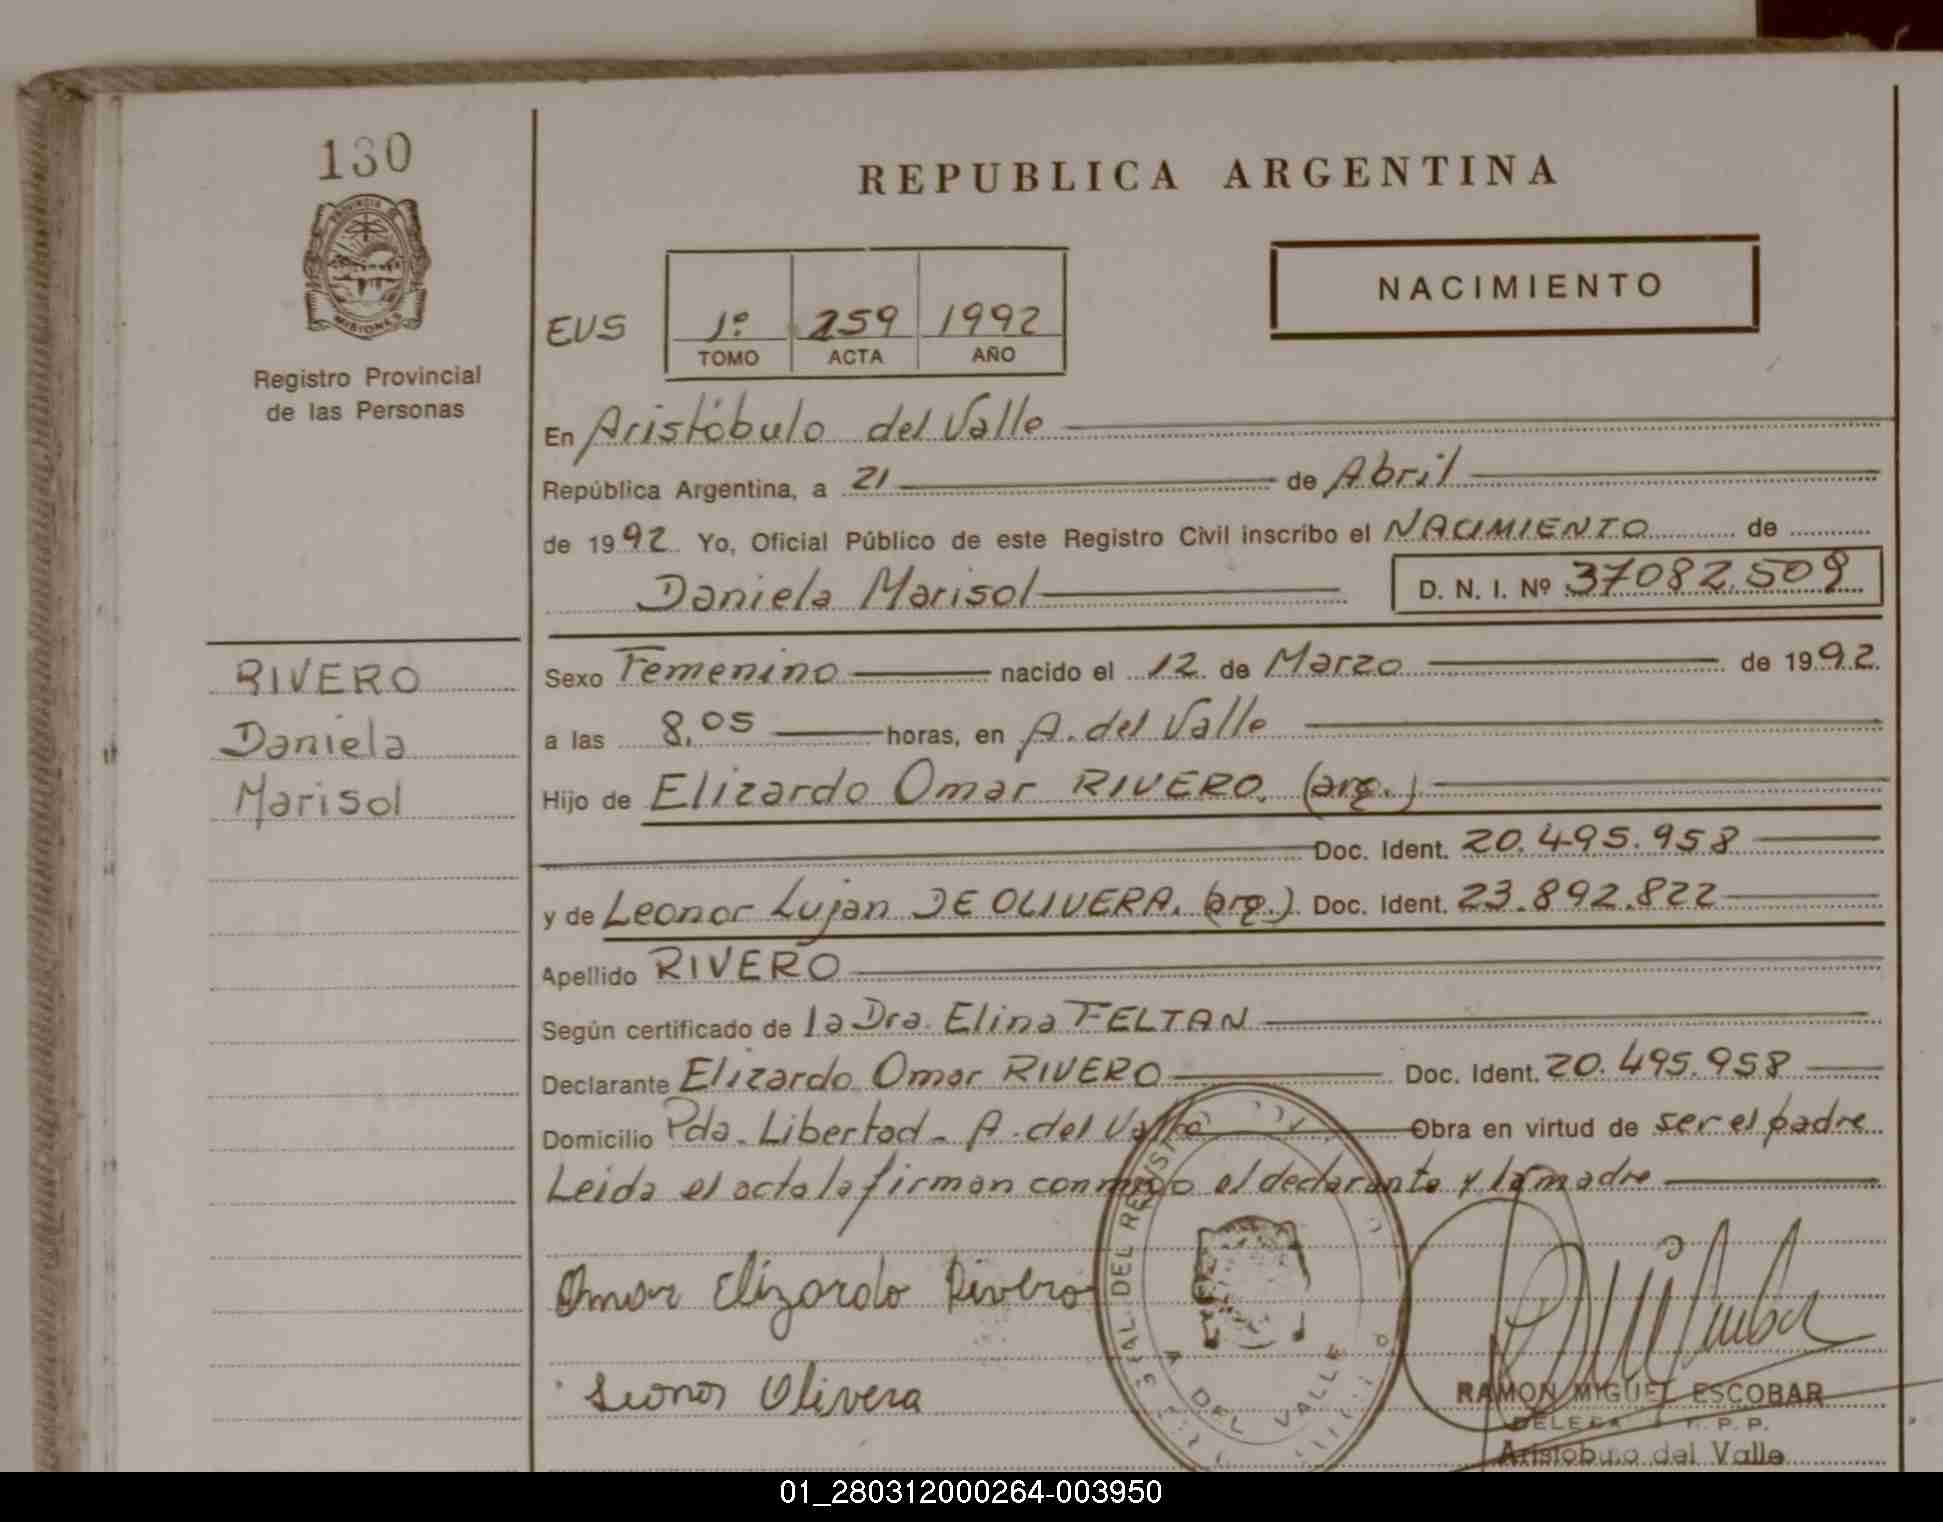 130
PROVINCIA DE
MISIONES
Registro Provincial
de las Personas
RIVERO
Daniela
Marisol
REPUBLICA ARGENTINA
NACIMIENTO
EUS 1º 259 1992
TOMO ACTA AÑO
En Aristóbulo del Valle
República Argentina, a 21 de Abril
de 1992 Yo, Oficial Público de este Registro Civil inscribo el NACIMIENTO de
Daniela Marisol D. N. I. Nº 37082.509
Sexo Femenino nacido el 12 de Marzo de 1992.
a las 8,05 horas, en A. del Valle
Hijo de Elizardo Omar RIVERO. (arg.)
Doc. Ident. 20.495.958
y de Leonor Lujan DE OLIVERA. (arg.) Doc. Ident. 23.892.822
Apellido RIVERO
Según certificado de la Dra. Elina FELTAN
Declarante Elizardo Omar RIVERO Doc. Ident. 20.495.958
Domicilio Pda. Libertad - A. del Valle Obra en virtud de ser el padre
Leida el acta la firman conmigo el declarante y la madre
Omar Elizardo Rivero
Leonor Olivera
DEL REGISTRO
DEL VALLE
RAMON MIGUEL ESCOBAR
Aristobulo del Valle
01_280312000264-003950